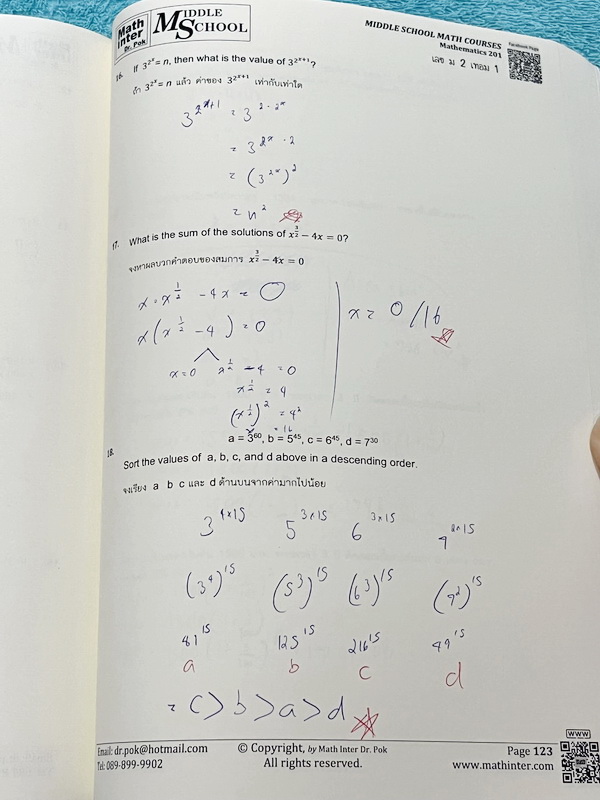 Math Inter Dr. Pok MIDDLE SCHOOL
MIDDLE SCHOOL MATH COURSES
Mathematics 201
Facebook Page
เลข ม 2 เทอม 1
16. If 3^{2^x} = n, then what is the value of 3^{2^{x+1}}?
ถ้า 3^{2^x} = n แล้ว ค่าของ 3^{2^{x+1}} เท่ากับเท่าใด
3^{2^{x+1}} = 3^{2·2^x}
= 3^{2^x·2}
= (3^{2^x})^2
= n^2
17. What is the sum of the solutions of x^{3/2} − 4x = 0?
จงหาผลบวกคำตอบของสมการ x^{3/2} − 4x = 0
x·x^{1/2} − 4x = 0
x(x^{1/2} − 4) = 0
x=0 x^{1/2} − 4 = 0
x^{1/2} = 4
(x^{1/2})^2 = 4^2
= 16
x = 0/16
18. a = 3^{60}, b = 5^{45}, c = 6^{45}, d = 7^{30}
Sort the values of a, b, c, and d above in a descending order.
จงเรียง a b c และ d ด้านบนจากค่ามากไปน้อย
3^{4×15} 5^{3×15} 6^{3×15} 7^{2×15}
(3^4)^{15} (5^3)^{15} (6^3)^{15} (7^2)^{15}
81^{15} 125^{15} 216^{15} 49^{15}
a b c d
= c > b > a > d
Email: dr.pok@hotmail.com
Tel: 089-899-9902
© Copyright, by Math Inter Dr. Pok
All rights reserved.
Page 123
www.mathinter.com
WWW